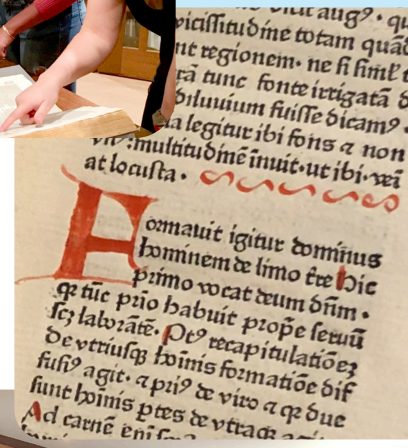 dicit augꝰ. qu
vicissitudine totam quā
nt regionem. ne si siml̄ t
tā tunc fonte irrigatā
diluuium fuisse dicamꝰ
legitur ibi fons ⁊ non
multitudinē inuit. ut ibi. vēi
at locusta.
Formauit igitur dominus
hominem de limo t̄re Hic
primo vocat deum dn̄m.
ꝙ tūc prīo habuit prop̄e seruū
scꝫ laborātē. Ptꝰ recapitulatiōeꝫ
de vtriusqꝫ hoīnis formatiōe dif
fusiꝰ agit. ⁊ priꝰ de viro ⁊ ꝙ due
sunt hoīnis ꝑtes de vtraqꝫ
Ad carnē enī